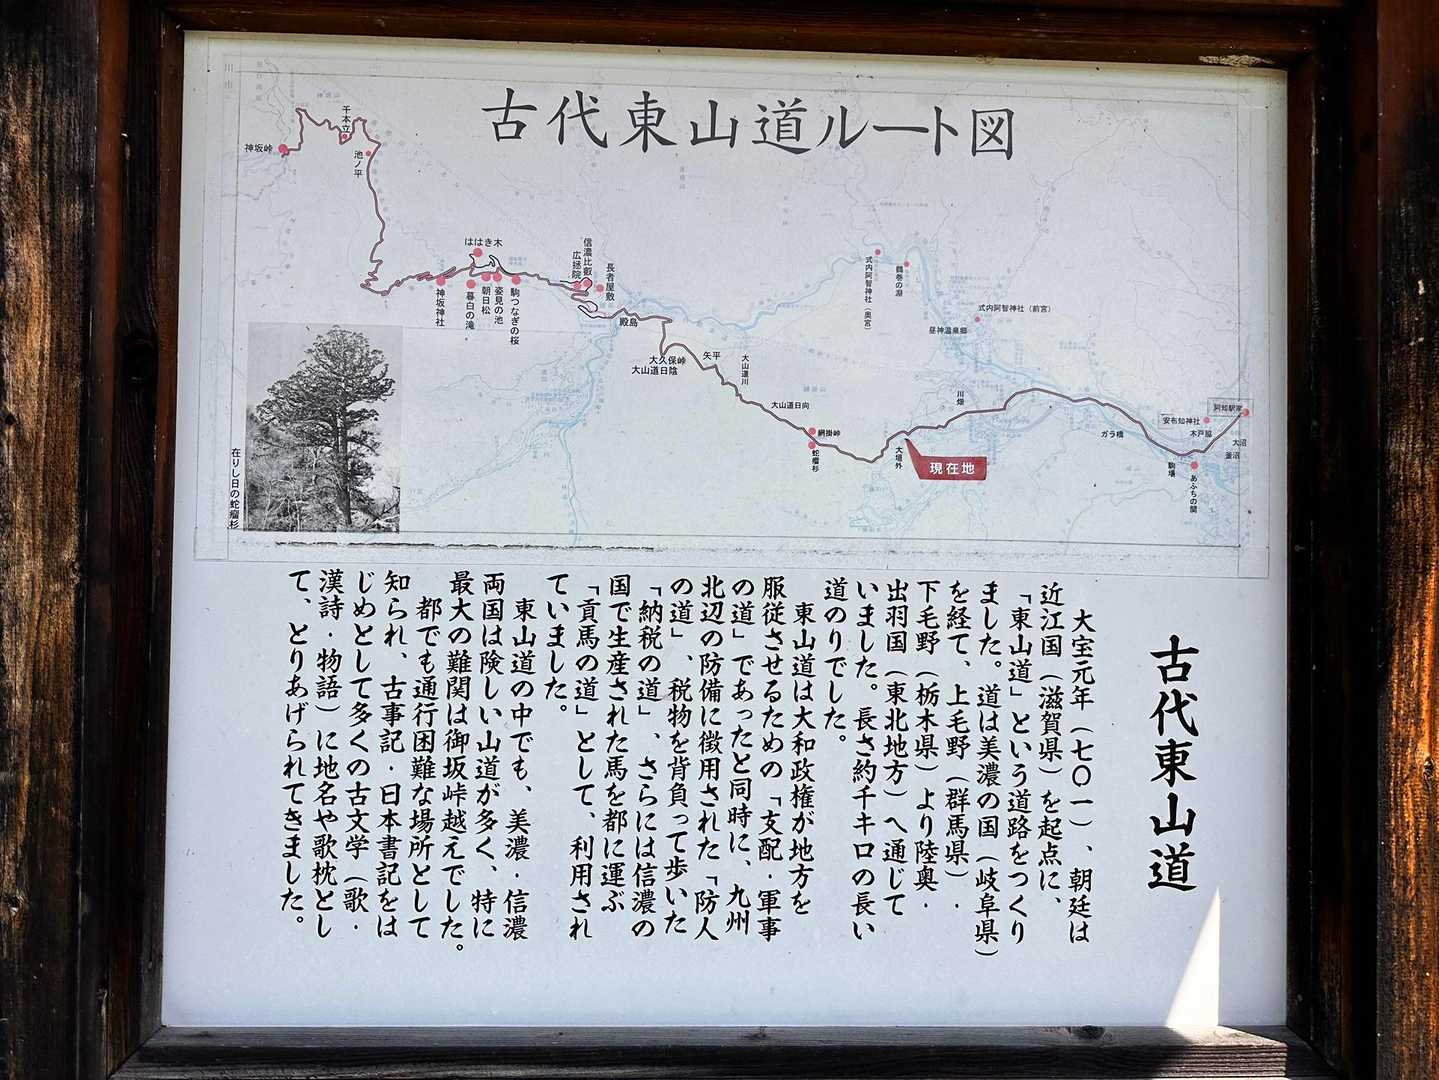 古代東山道ルート図
神坂峠
千本立
池ノ平
ははき木
神坂神社
暮白の滝
朝日松
姿見の池
駒つなぎの桜
信濃比叡
広拯院
長者屋敷
殿島
大久保峠
大山道日陰
矢平
大山道川
大山道日向
網掛峠
蛇瘤杉
大垣外
現在地
川畑
式内阿智神社（奥宮）
鶴巻の淵
式内阿智神社（前宮）
昼神温泉郷
ガラ橋
安布知神社
阿知駅家
木戸脇
大沼
釜沼
駒場
あふちの関
在りし日の蛇瘤杉
古代東山道
大宝元年（七〇一）、朝廷は
近江国（滋賀県）を起点に、
「東山道」という道路をつくり
ました。道は美濃の国（岐阜県）
を経て、上毛野（群馬県）・
下毛野（栃木県）より陸奥・
出羽国（東北地方）へ通じて
いました。長さ約千キロの長い
道のりでした。
東山道は大和政権が地方を
服従させるための「支配・軍事
の道」であったと同時に、九州
北辺の防備に徴用された「防人
の道」、税物を背負って歩いた
「納税の道」、さらには信濃の
国で生産された馬を都に運ぶ
「貢馬の道」として、利用され
ていました。
東山道の中でも、美濃・信濃
両国は険しい山道が多く、特に
最大の難関は御坂峠越えでした。
都でも通行困難な場所として
知られ、古事記・日本書記をは
じめとして多くの古文学（歌・
漢詩・物語）に地名や歌枕とし
て、とりあげられてきました。